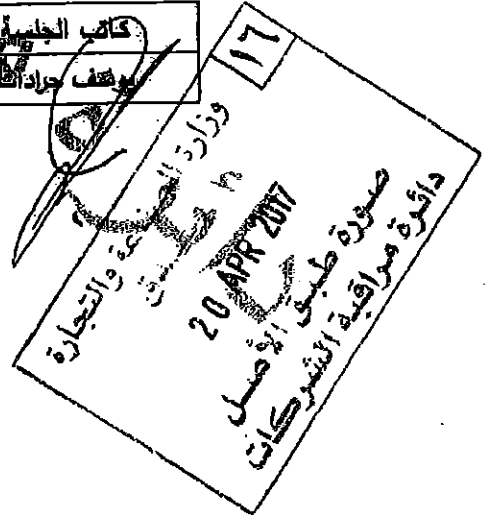 كاتب الجلسة
يوسف جرادات
١٦
وزارة الصناعة والتجارة
20 APR 2017
صورة طبق الأصل
دائرة مراقبة الشركات